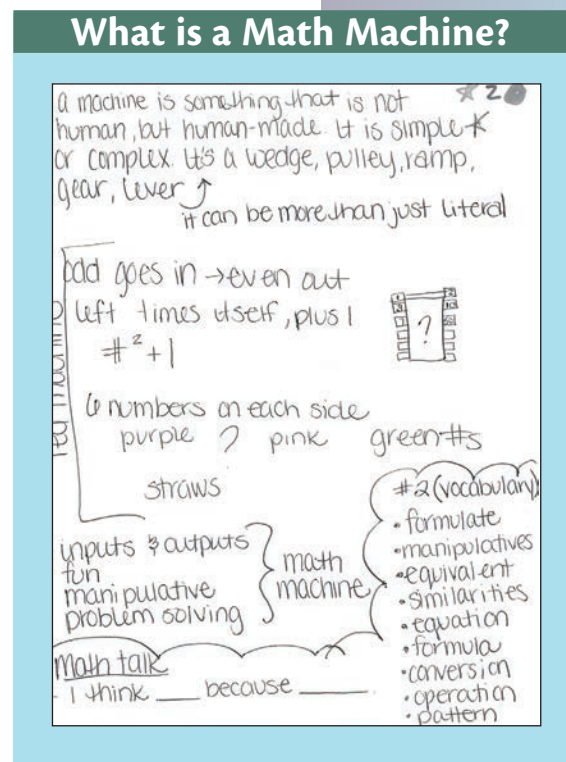 What is a Math Machine?
a machine is something that is not
human, but human-made. It is simple
or complex. It's a wedge, pulley, ramp,
gear, lever ↑
it can be more than just literal
#2
odd goes in → even out
left times itself, plus 1
#² + 1
?
6 numbers on each side
purple ? pink green #s
straws
machine
inputs & outputs
fun
manipulative
problem solving
math
machine
#2 (vocabulary)
• formulate
• manipulatives
• equivalent
• similarities
• equation
• formula
• conversion
• operation
• pattern
Math talk
- I think ___ because ___.